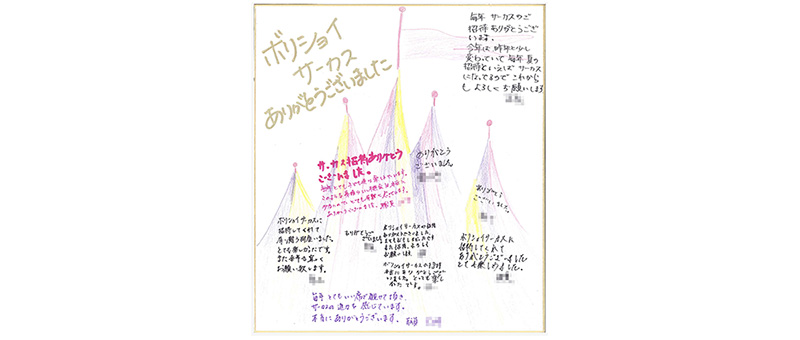 ボリショイ
サーカス
ありがとうございました
毎年 サーカスのご
招待 ありがとうござ
います。
今年は 昨年と少し
変わっていて 毎年 夏の
招待といえば サーカス
になってるので これから
も よろしく お願いします
サーカス招待ありがとう
ございました。
ありがとう
ございました
ありがとう
ございました。
ボリショイサーカスに
招待してくれて
有り難う御座いました。
とても楽しかったです。
また来年も宜しく
お願い致します。
ありがとうご
ざいました
ボリショイサーカスの招待
ありがとうございました。
ボリショイサーカスの招待
ボリショイサーカスに
招待してくれて
ありがとうございました
とても楽しめました。
毎年 とてもいい席で観せて頂き、
サーカスの迫力を感じています。
本当にありがとうございます。